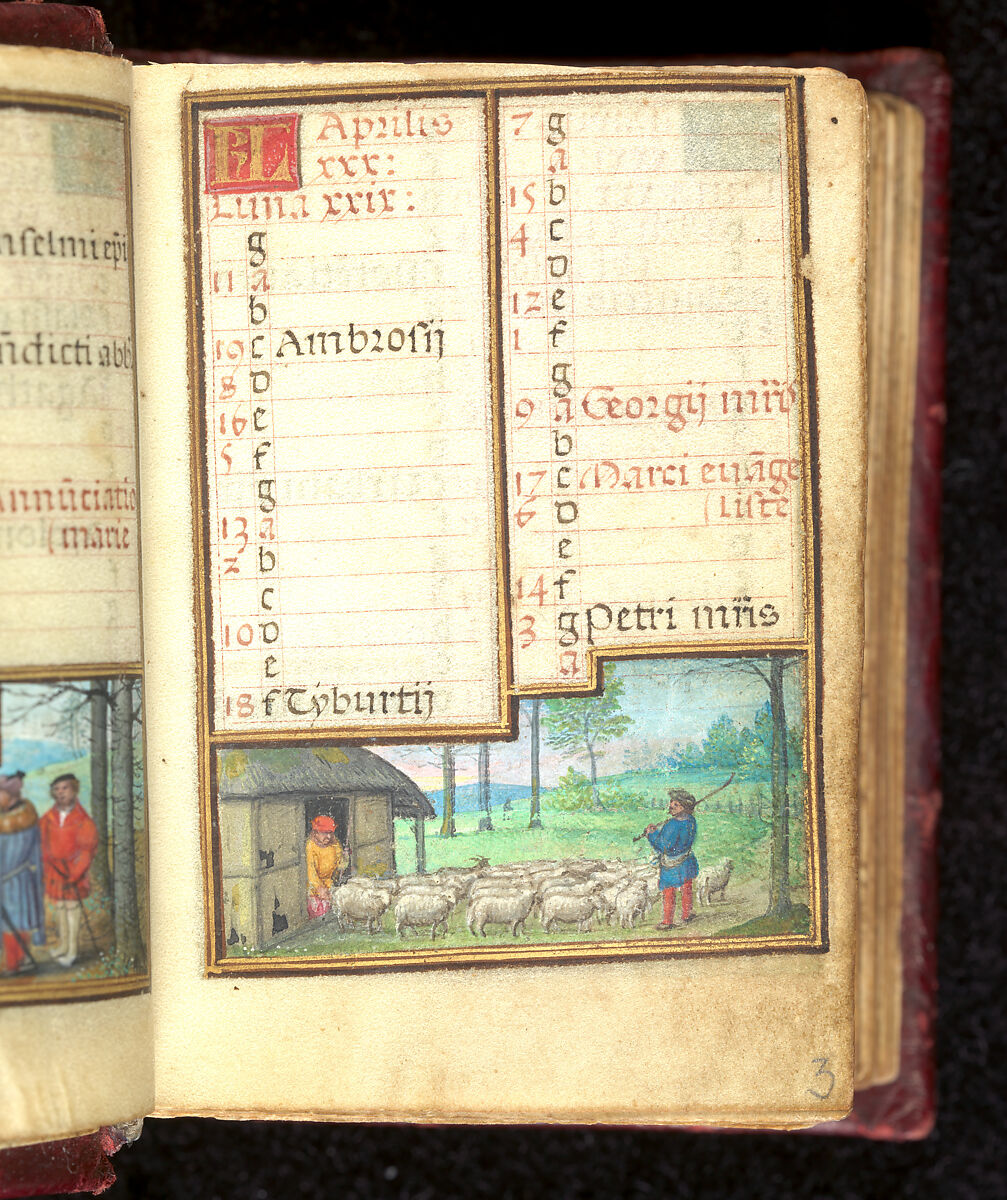 nselmi epi
ndicti abb
Annuciatio
(marie
KL Aprilis
xxx:
Luna xxix:
g
11 a
b
19 c Ambrosij
8 D
16 e
5 f
g
13 a
2 b
c
10 D
e
18 f Tyburtij
7 g
a
15 b
4 c
D
12 e
1 f
g
9 a Georgij mris
b
17 c Marci euāge
6 D (liste
e
14 f
3 g Petri mris
a
3